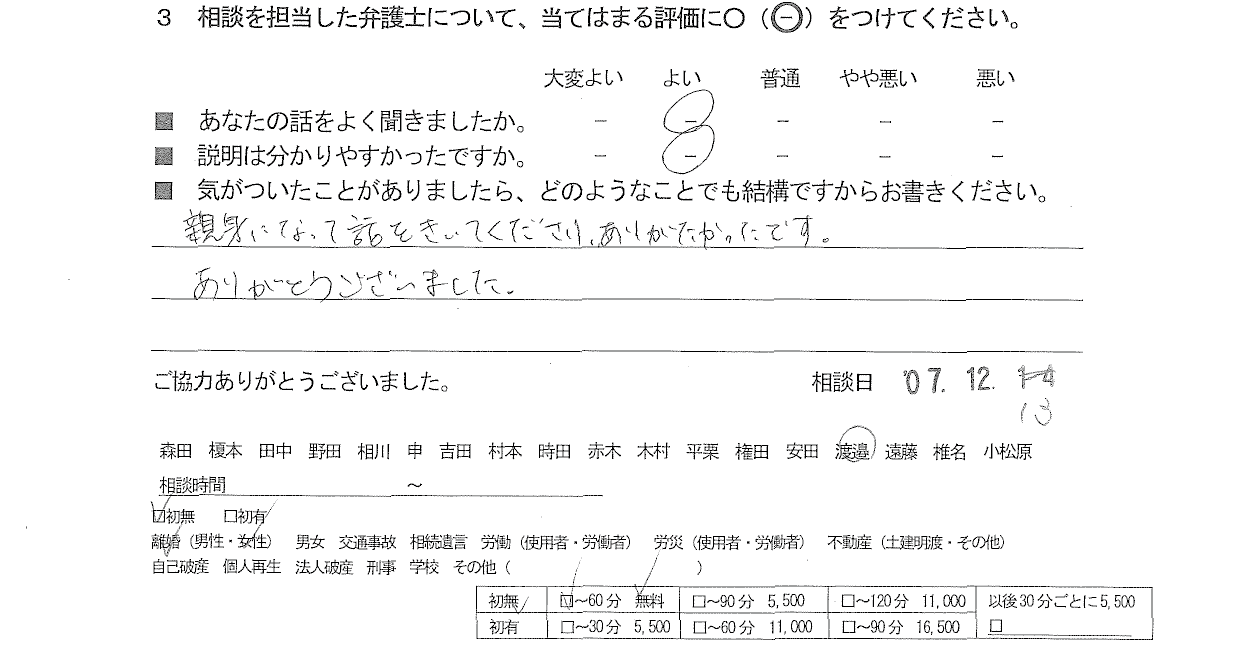 3 相談を担当した弁護士について、当てはまる評価に○（㊀）をつけてください。
大変よい よい 普通 やや悪い 悪い
■ あなたの話をよく聞きましたか。 － － － － －
■ 説明は分かりやすかったですか。 － － － － －
■ 気がついたことがありましたら、どのようなことでも結構ですからお書きください。
親身になって話をきいてくださり、ありがたかったです。
ありがとうございました。
ご協力ありがとうございました。 相談日 '07. 12. 14
13
森田 榎本 田中 野田 相川 申 吉田 村本 時田 赤木 木村 平栗 権田 安田 渡邉 遠藤 椎名 小松原
相談時間 ～
☑初無 □初有
離婚（男性・女性） 男女 交通事故 相続遺言 労働（使用者・労働者） 労災（使用者・労働者） 不動産（土建明渡・その他）
自己破産 個人再生 法人破産 刑事 学校 その他（ ）
初無 ☑～60分 無料 □～90分 5,500 □～120分 11,000 以後30分ごとに5,500
初有 □～30分 5,500 □～60分 11,000 □～90分 16,500 □